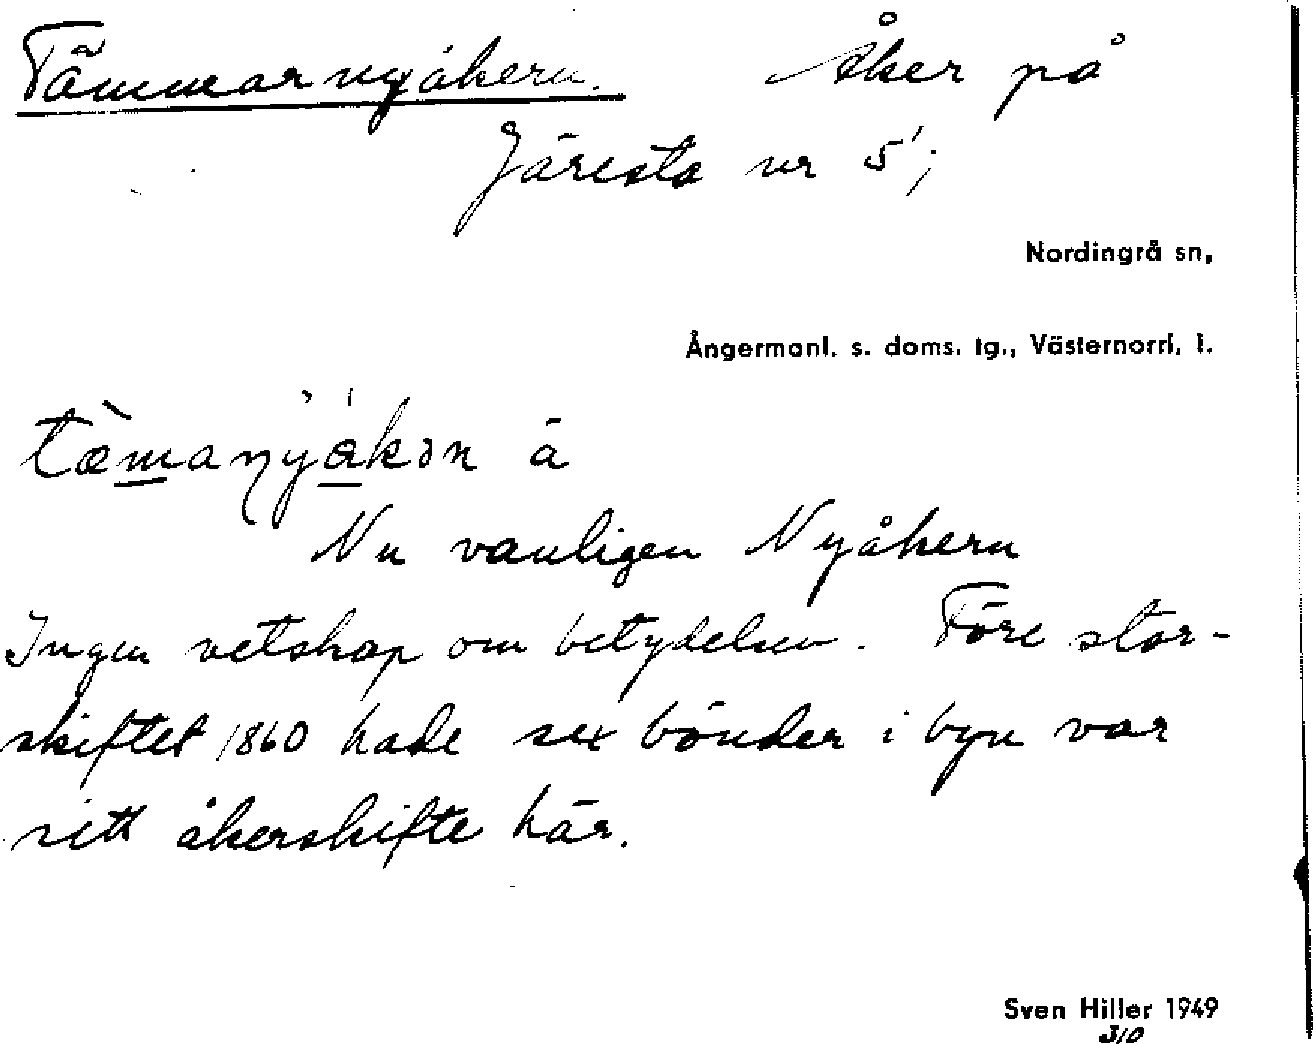 Tämmarnyåkern. Åker på
Järesta nr 5;
Nordingrå sn,
Ångermanl. s. doms. tg., Västernorrl. l.
tæ̀manyåkən å
Nu vanligen Nyåkern
Ingen vetskap om betydelsen. Före stor-
skiftet 1860 hade sex bönder i byn var
sitt åkerskifte här.
Sven Hiller 1949